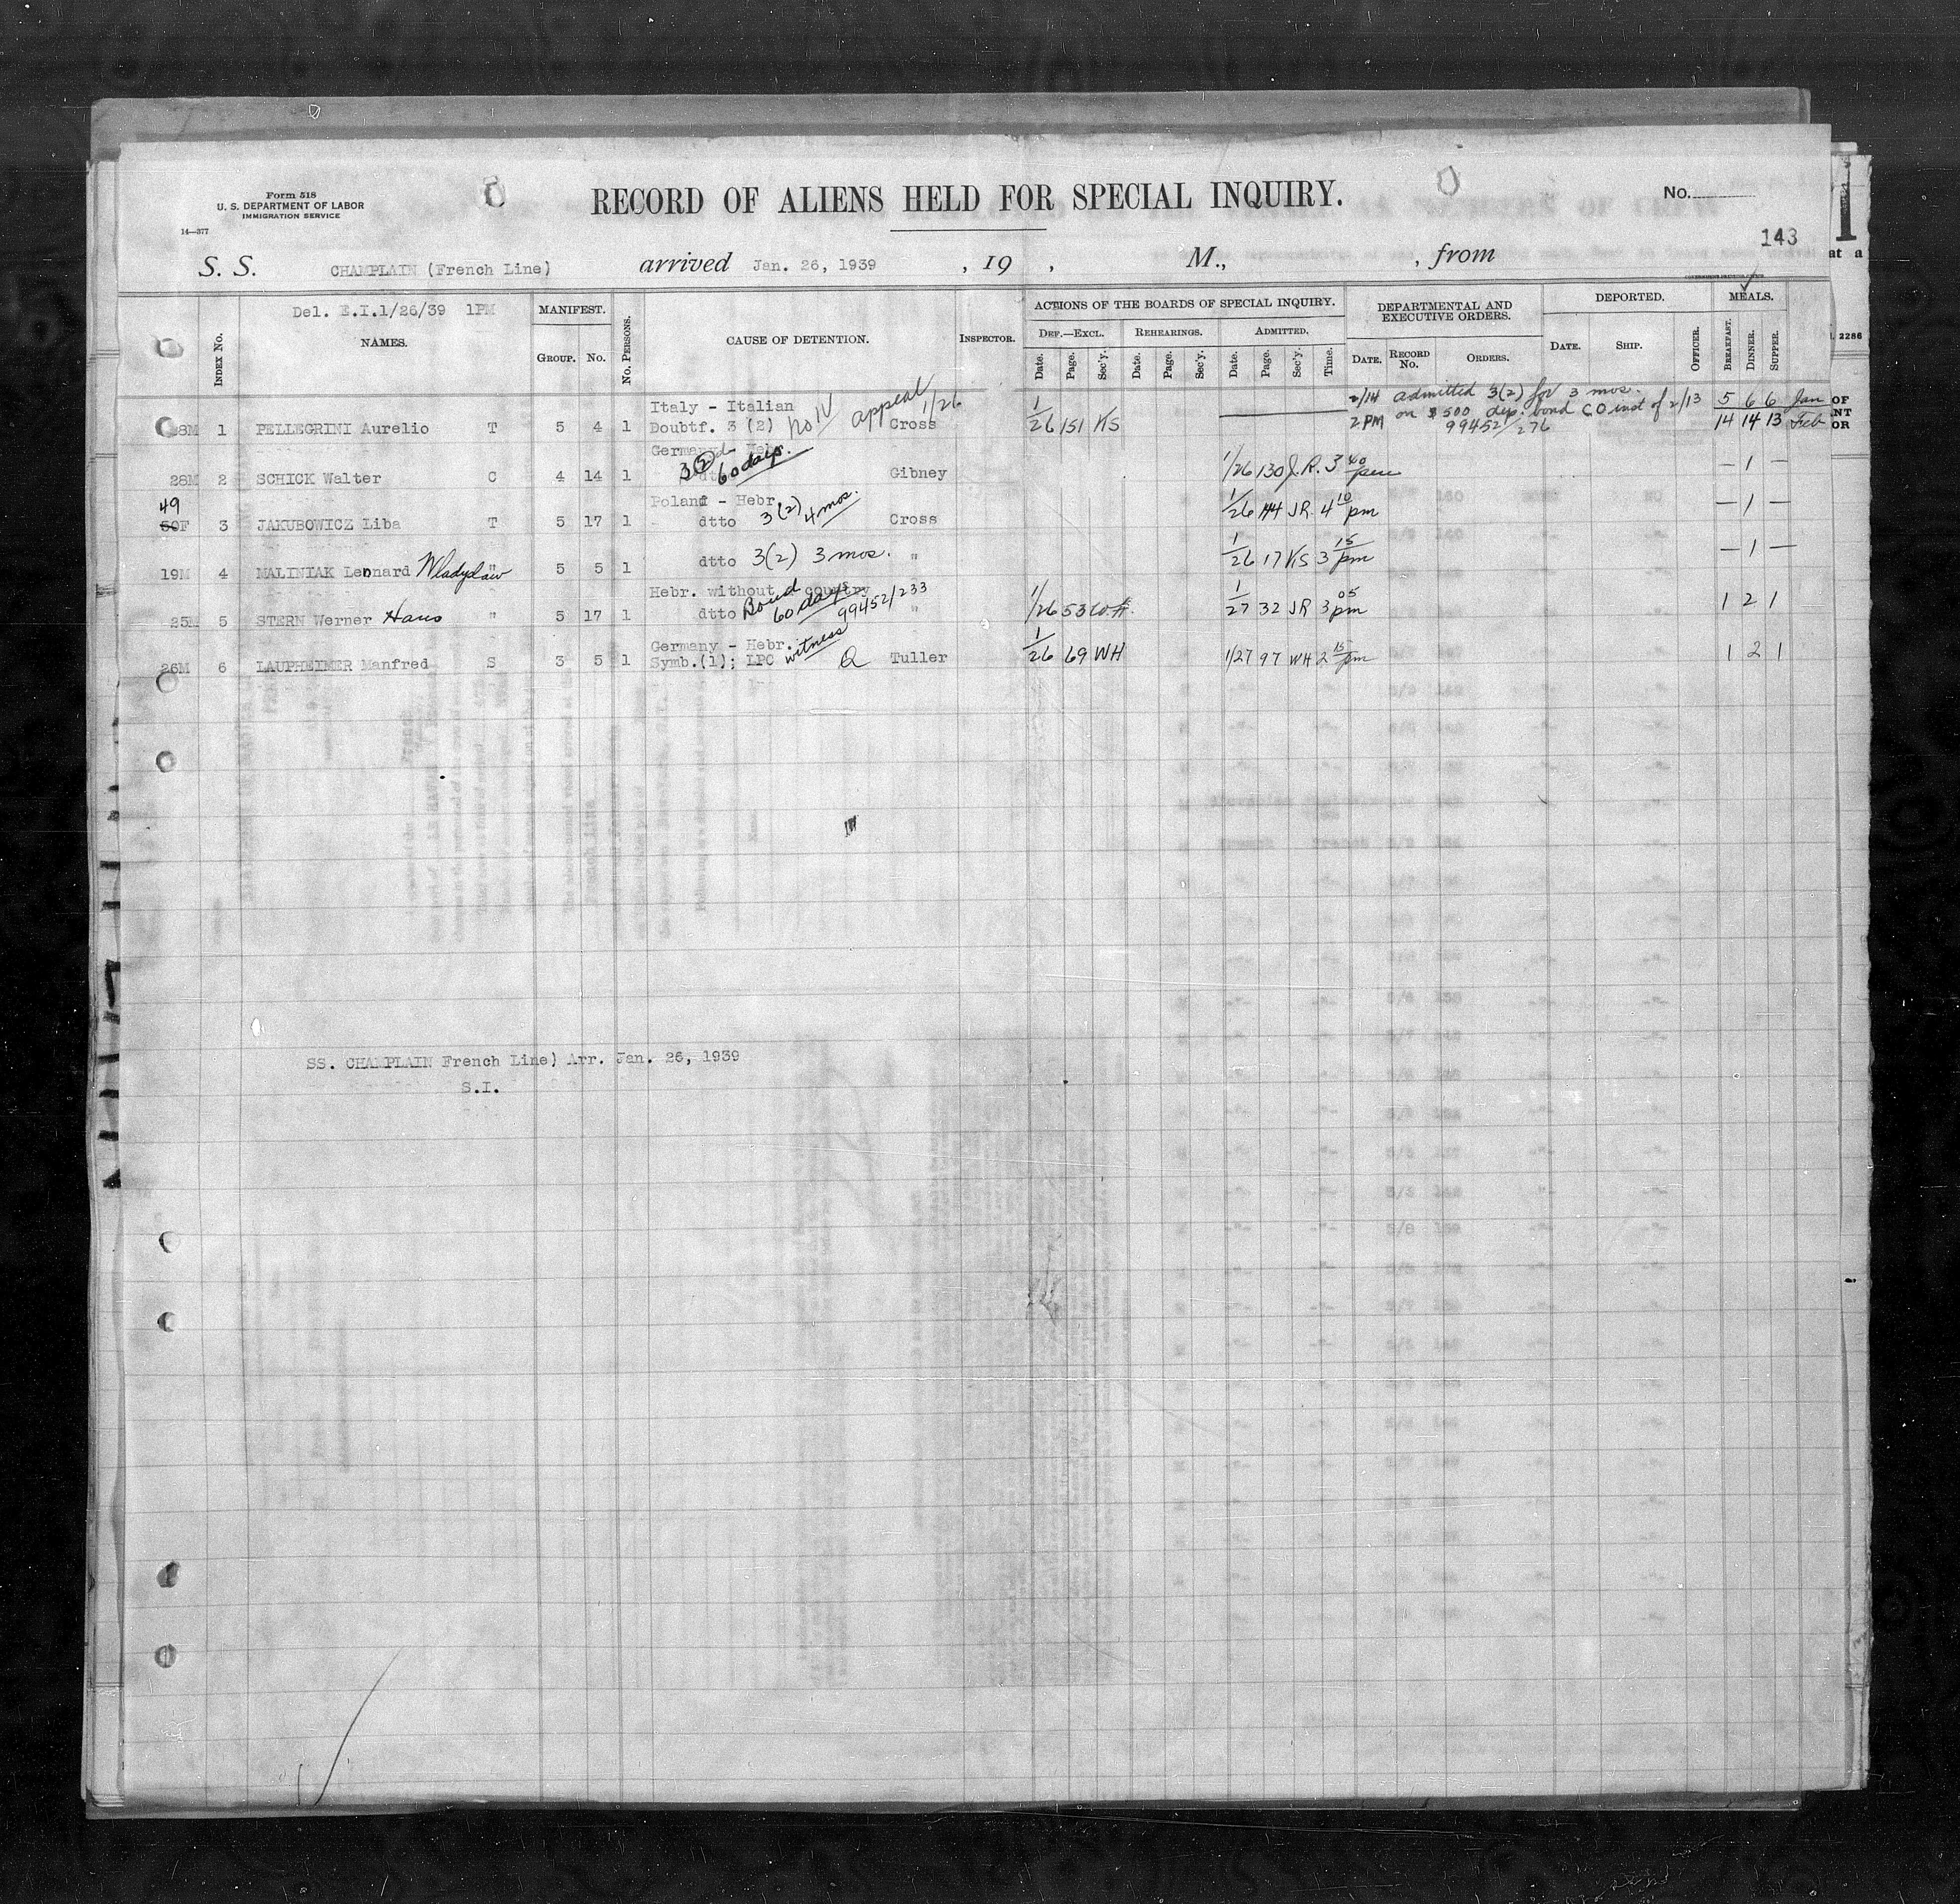 Form 518
U. S. DEPARTMENT OF LABOR
IMMIGRATION SERVICE
14—377
RECORD OF ALIENS HELD FOR SPECIAL INQUIRY.
No.
143
S. S. CHAMPLAIN (French Line) arrived Jan. 26, 1939 , 19 , M., , from
at a
Del. E.I.1/26/39 1PM
INDEX No.
NAMES.
MANIFEST.
GROUP. No.
No. PERSONS.
CAUSE OF DETENTION.
INSPECTOR.
ACTIONS OF THE BOARDS OF SPECIAL INQUIRY.
DEF.—EXCL. REHEARINGS. ADMITTED.
Date. Page. Sec'y. Date. Page. Sec'y. Date. Page. Sec'y. Time.
DEPARTMENTAL AND
EXECUTIVE ORDERS.
DATE. RECORD No. ORDERS.
DEPORTED.
DATE. SHIP. OFFICER.
MEALS.
BREAKFAST. DINNER. SUPPER.
2286
Italy - Italian appeal 1/26 2/14 admitted 3(2) for 3 mos. 5 6 6 Jan OF
8M 1 PELLEGRINI Aurelio T 5 4 1 Doubtf. 3 (2) no IV Cross 1/26 151 KS 2 PM on $500 dep. bond CO inst of 2/13 14 14 13 Feb
99452/276
NT
OR
Germany - Hebr.
28M 2 SCHICK Walter C 4 14 1 3(2) 60 days. Gibney 1/26 130 J.R. 3 40 pm — 1 —
49 Poland - Hebr.
50F 3 JAKUBOWICZ Liba T 5 17 1 dtto 3(2) 4 mos. Cross 1/26 144 JR 4 10 pm — 1 —
19M 4 MALINIAK Leonard Wladyslaw " 5 5 1 dtto 3(2) 3 mos. " 1/26 17 KS 3 15 pm — 1 —
Hebr. without country
25M 5 STERN Werner Hans " 5 17 1 dtto Bond 60 days 99452/233 " 1/26 53 1/27 32 JR 3 05 pm 1 2 1
Germany - Hebr.
26M 6 LAUPHEIMER Manfred S 3 5 1 Symb.(1); LPC witness Q Tuller 1/26 69 WH 1/27 97 WH 2 15 pm 1 2 1
SS. CHAMPLAIN French Line) Arr. Jan. 26, 1939
S.I.